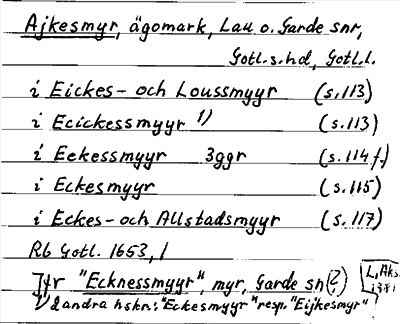 Ajkesmyr, ägomark, Lau o. Garde snr,
Gotl. s. hd, Gotl. l.
i Eickes- och Loussmyyr (s. 113)
i Ecickessmyyr 1) (s. 113)
i Eekessmyyr 3ggr (s. 114 f.)
i Eckesmyyr (s. 115)
i Eckes- och Allstadsmyyr (s. 117)
Rb Gotl. 1653, 1
Jfr "Ecknessmyyr", myr, Garde sn (?)
1) 2 andra hskr.: "Eckesmyyr" resp. "Eijkesmyr"